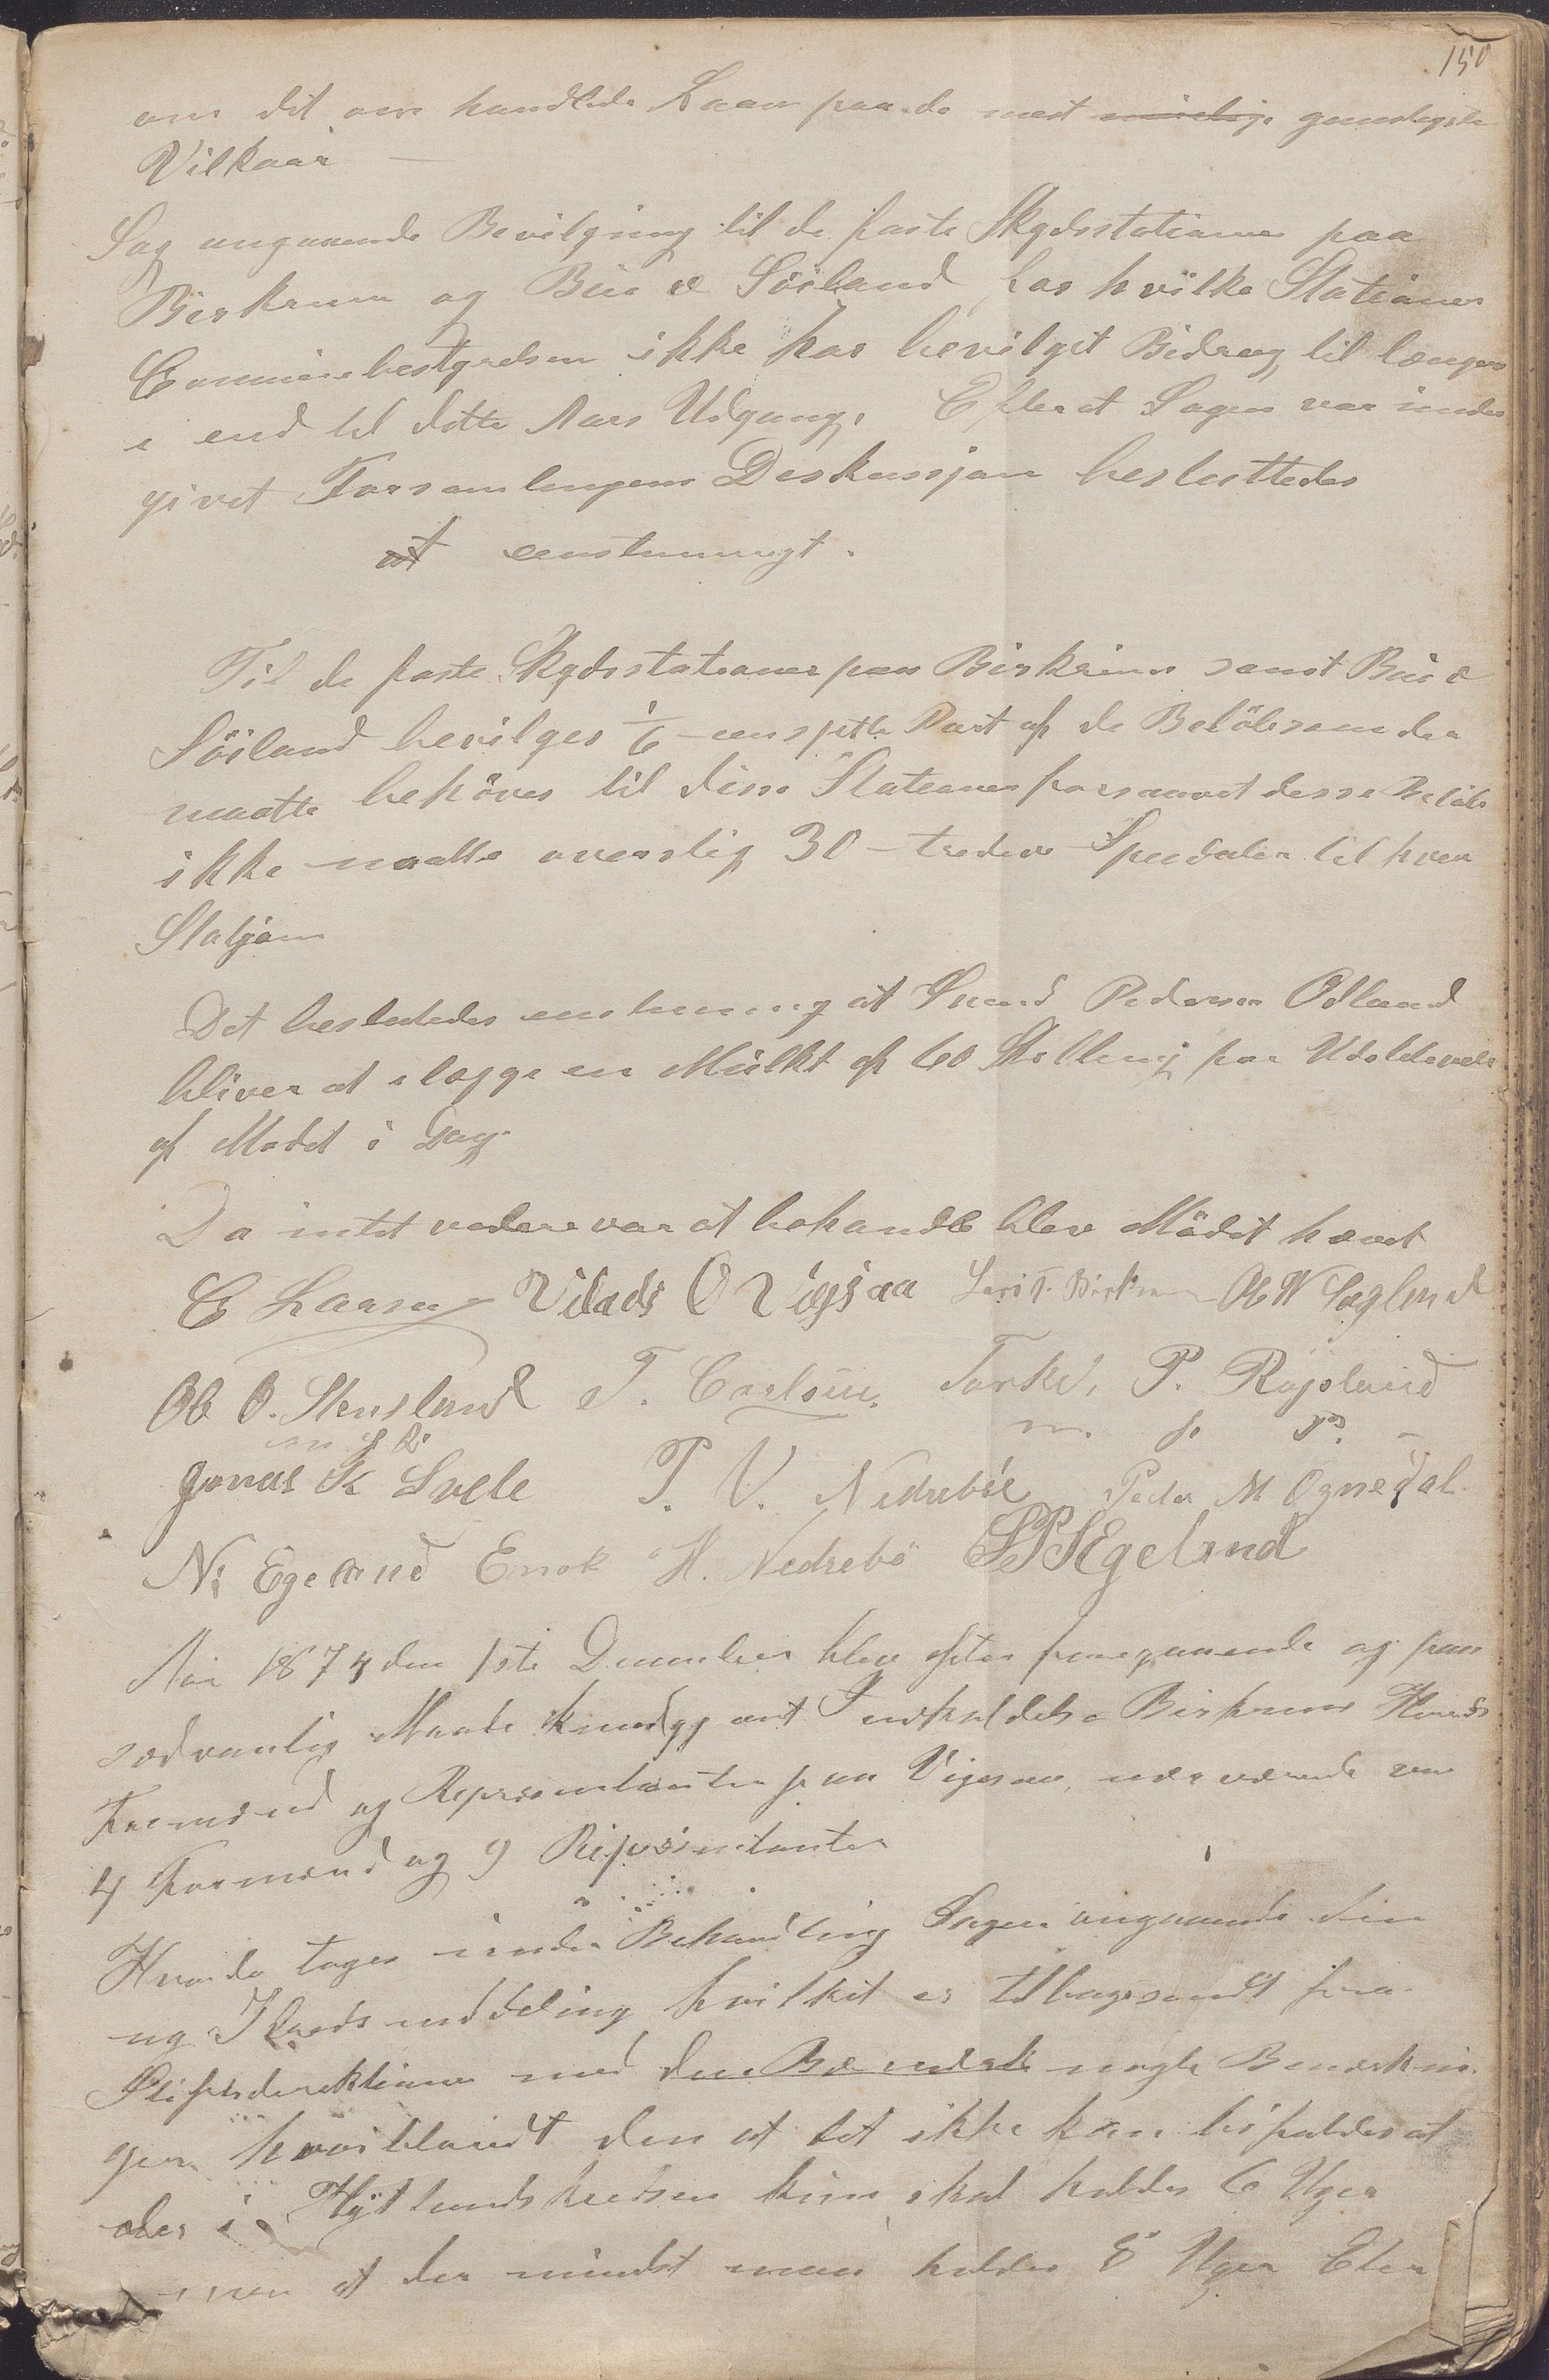 150
om det om handlede Laan paa de mest mulige gunstigste
Vilkaar —
Sag angaaende Bevilgning til de faste Skydsstationer paa
Birkrem og Bue & Söiland for hvilke Stationer
Communebestyrelsen ikke har bevilget Bidrag til længer
e end til dette Aars Udgang. Efter at Sagen var under
givet Forsamlingens Diskussjon besluttedes
at eenstemmigt.
Til de faste Skydsstationer paa Birkrem samt Bue &
Söiland bevilges 1/6 – een sjette Part af de Belöb som der
maatte behöves til disse Stationer forsaavet desse Belöb
ikke maatte overstig 30 – tredeve Speciedaler til hver
Statjon
Det besluttedes enstemmig at Svend Pedersen Ödland
bliver at elægge en Mulkt af 60 Skilling for Udeblivelse
af Mödet i Dag.
Da intet vedere var at behandle blev Mödet hævet
E Laarsen Vilads O Vigsaa Lars T. Birkrem Ole W Soglund
Ole O. Stensland T. Carlsen. Torkel P. Røysland
m f P m. f. P. –
Jonas K Svele T. V. Nedreböe Peder M Ognedal
N: Egeland Enok H. Nedrebö S P S Egeland
Aar 1874 den 1ste December blev efter foregaaende og paa
sædvanlig Maade kundgjort Indkaldelse Birkrems Herreds
Formænd og Repræsentanter paa Vigesaa, nærværende var
4 Formænd og 9 Repræsentanter
Hvorda toges under Behandling Sagen angaaende den
ny Kredsinddeling hvilket er tilbagesendt fra
Stiftsdirektionen med den Bemærk nogle Bemærknin
ger hvoriblandt den at det ikke kan bifaldes at
der i Hytlandskredsen kun skal holdes 6 Uger
men at der mindst maa holdes 8 Uger Efter